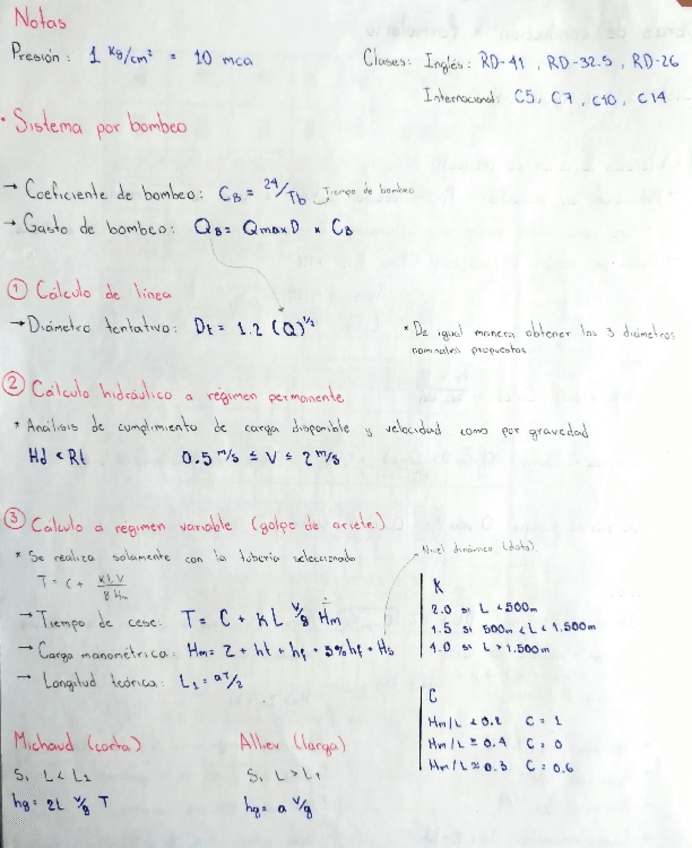 Notas
Presión: 1 Kg/cm² = 10 mca
Clases: Inglés: RD-41, RD-32.5, RD-26
Internacional: C5, C7, C10, C14
• Sistema por bombeo
→ Coeficiente de bombeo: CB = 24/Tb Tiempo de bombeo
→ Gasto de bombeo: QB = QmaxD x CB
① Cálculo de línea
→ Diámetro tentativo: Dt = 1.2 (Q)^1/2
* De igual manera obtener los 3 diámetros
nominales propuestos
② Cálculo hidráulico a régimen permanente
* Análisis de cumplimiento de carga disponible y velocidad como por gravedad
Hd < Rt 0.5 m/s ≤ V ≤ 2 m/s
③ Cálculo a régimen variable (golpe de ariete)
* Se realiza solamente con la tubería seleccionada
Nivel dinámico (dato).
T = C + KLV/g Hm
→ Tiempo de cese: T = C + KL V/g Hm
→ Carga manométrica: Hm = Z + ht + hf + 5%hf + Hs
→ Longitud teórica: L1 = aT/2
K
2.0 si L < 500m
1.5 si 500m < L < 1.500m
1.0 si L > 1.500m
C
Hm/L < 0.2 C = 1
Hm/L ≥ 0.4 C = 0
Hm/L ≈ 0.3 C = 0.6
Michaud (corta)
Si L < L1
hg = 2L V/g T
Alliev (larga)
Si L > L1
hg = a V/g